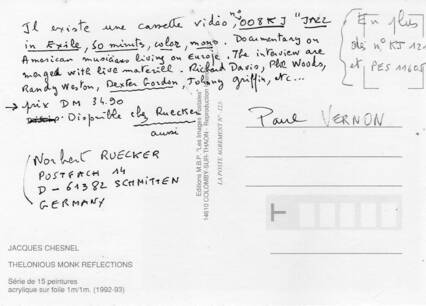 Il existe une cassette vidéo, n° 008KJ "JAZZ
in Exile, 50 minuts, color, mono. Documentary on
American musicians living on Europe. The intaview are
marged with live materill. Richard Davis, Phil Woods,
Randy Weston, Dexter Gordon, Johnny Griffin, etc...
→ prix DM 34.90
Disponible chez Ruecker
aussi
Norbert RUECKER
POSTFACH 14
D - 61382 SCHMITTEN
GERMANY
En plus
des n° KJ 121
et PES 11605
Paul VERNON
Editions M.B.P. "Les Images Passables"
14610 COLOMBY-SUR-THAON - Reproduction
LA POSTE AGREMENT N° 223
JACQUES CHESNEL
THELONIOUS MONK REFLECTIONS
Série de 15 peintures
acrylique sur toile 1m/1m. (1992-93)